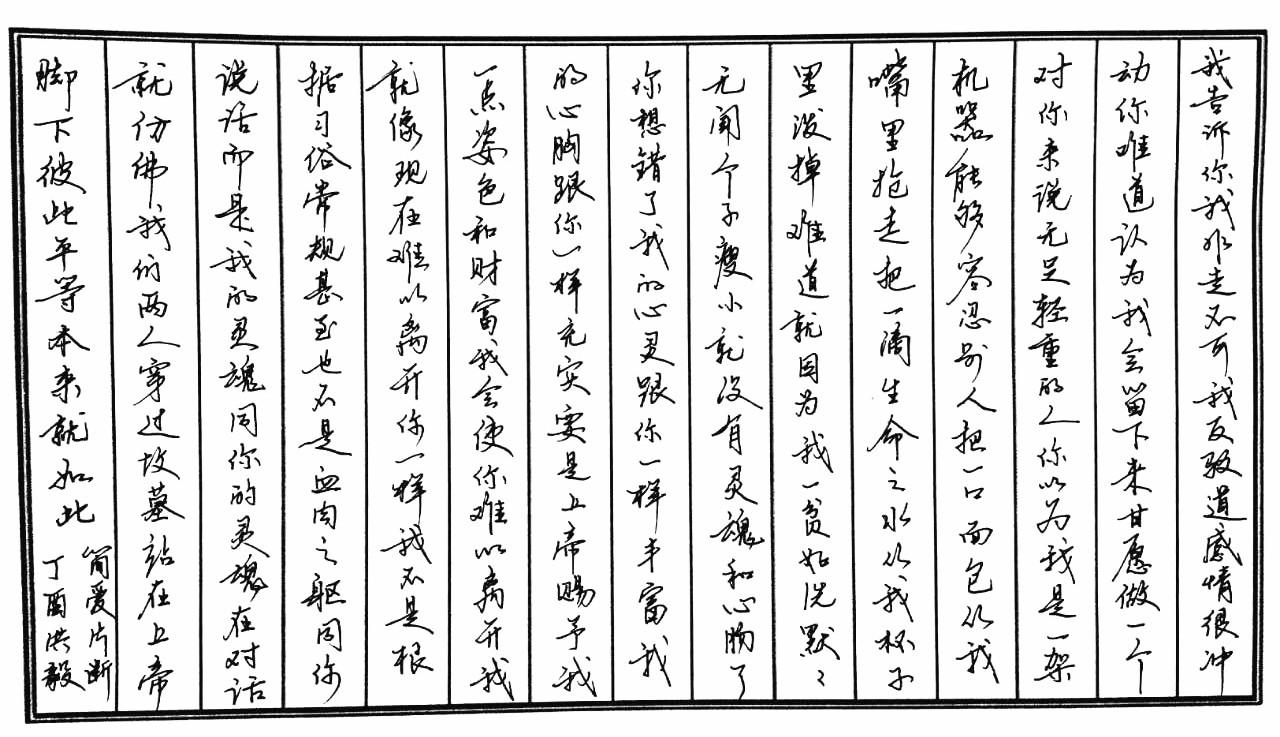 我告诉你我非走不可我反驳道感情很冲
动你难道认为我会留下来甘愿做一个
对你来说无足轻重的人你以为我是一架
机器能够容忍别人把一口面包从我
嘴里抢走把一滴生命之水从我杯子
里泼掉难道就因为我一贫如洗默〻
无闻个子瘦小就没有灵魂和心肠了
你想错了我的心灵跟你一样丰富我
的心胸跟你一样充实要是上帝赐予我
一点姿色和财富我会使你难以离开我
就像现在难以离开你一样我不是根
据习俗常规甚至也不是血肉之躯同你
说话而是我的灵魂同你的灵魂在对话
就仿佛我们两人穿过坟墓站在上帝
脚下彼此平等本来就如此
简爱片断
丁酉洪毅